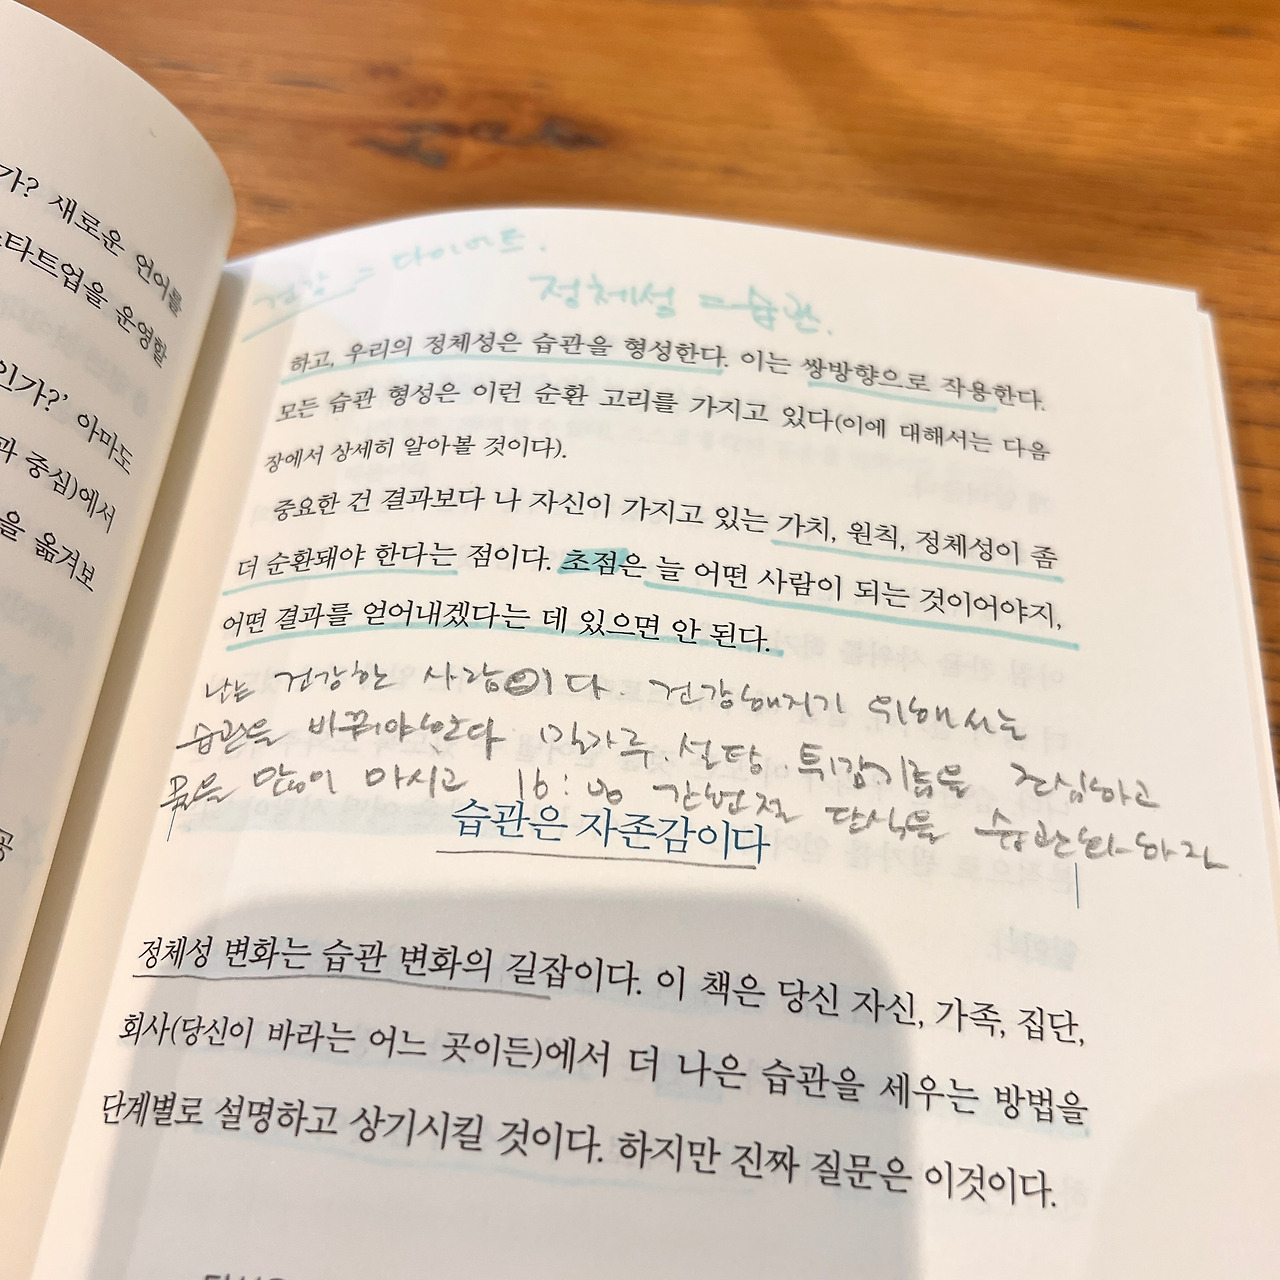 가? 새로운 언어를
스타트업을 운영할
인가?’ 아마도
과 중심)에서
을 옮겨보
공
건강 = 다이어트.
정체성 = 습관.
하고, 우리의 정체성은 습관을 형성한다. 이는 쌍방향으로 작용한다.
모든 습관 형성은 이런 순환 고리를 가지고 있다(이에 대해서는 다음
장에서 상세히 알아볼 것이다).
중요한 건 결과보다 나 자신이 가지고 있는 가치, 원칙, 정체성이 좀
더 순환돼야 한다는 점이다. 초점은 늘 어떤 사람이 되는 것이어야지,
어떤 결과를 얻어내겠다는 데 있으면 안 된다.
나는 건강한 사람이다. 건강해지기 위해서는
습관을 바꿔야한다 밀가루. 설탕. 튀김기름을 조심하고
물을 많이 마시고 16: 간헐적 단식을 습관화하자
습관은 자존감이다
정체성 변화는 습관 변화의 길잡이다. 이 책은 당신 자신, 가족, 집단,
회사(당신이 바라는 어느 곳이든)에서 더 나은 습관을 세우는 방법을
단계별로 설명하고 상기시킬 것이다. 하지만 진짜 질문은 이것이다.